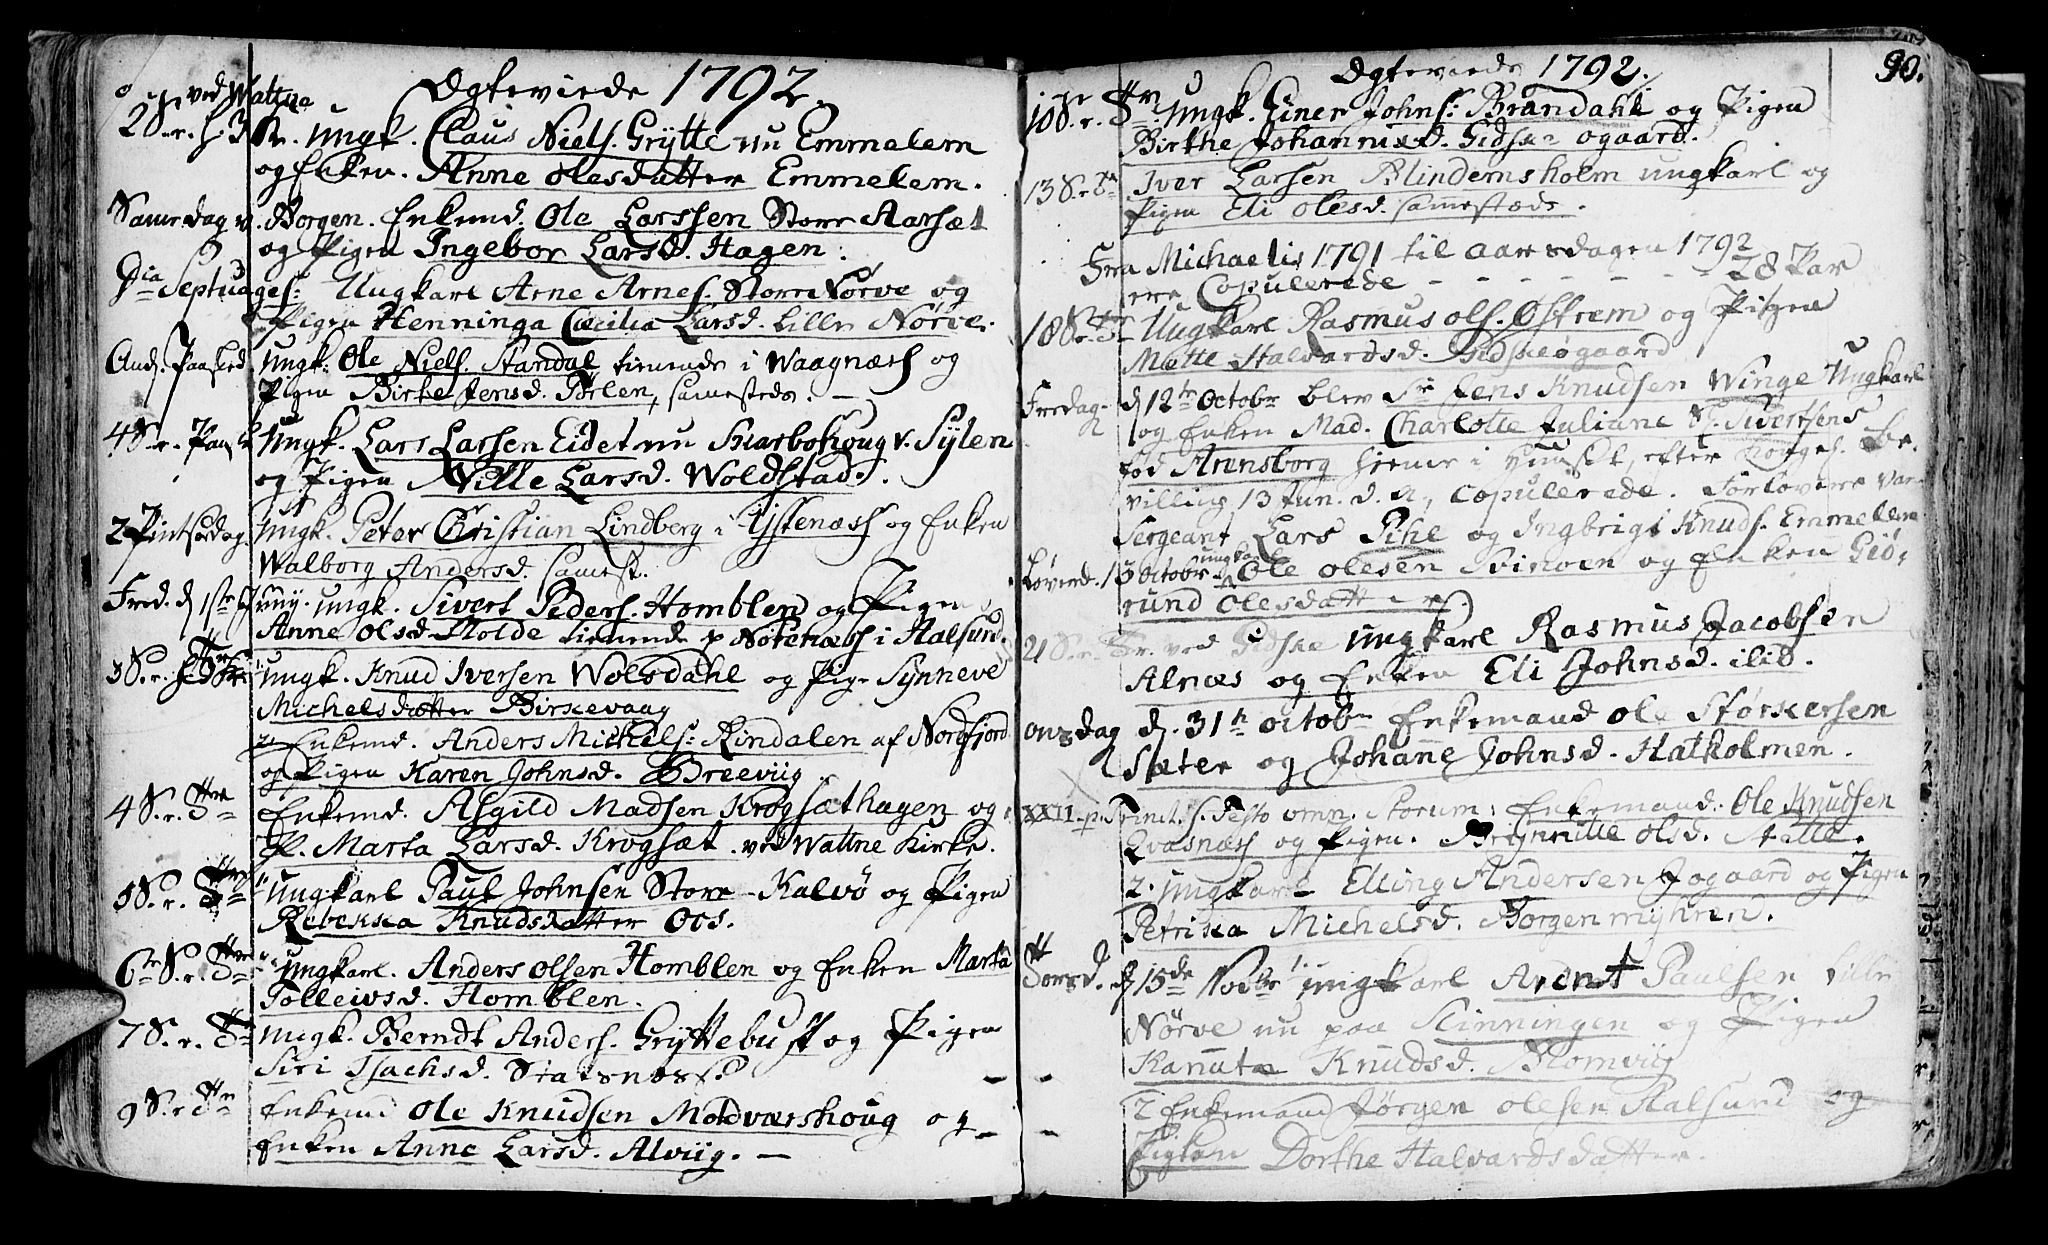 Ægteviede 1792.
ved Wattne
2 S. r. H. 3 K. Ungk. Claus Niels. Grÿtte nu Emmelem
og Enken Anne Olesdatter Emmelem.
Samedag v. Borgen. Enkemd. Ole Larssen Store Aarsæt
og Pigen Ingebor Larsd. Hagen.
Dca Septuages: Ungkarl Arne Arnes. Store Nörve og
Pigen Henninga Cæcilia Larsd. Lille Nörve.
And. Paasked. Ungk. Ole Niels. Standal tienende i Waagnæss og
Pigen Birte Jensd. samesteds. —
4 S. r. Paaske Ungk. Lars Larsen Eidet nu Skarbohoug v. Sÿlen
og Pigen Nille Larsd. Woldstad.
2 Pintsedag. Ungk. Peter Christian Lindberg i Ystenæss og Enken
Walborg Andersd. samest.
Fred. d. 1ste Juny. Ungk. Sivert Peders. Homblen og Pigen
Anne Olsd. Molde tienende p Nörenæss i Aalsund.
3 S. r. Tr. Ungk. Knud Iversen Wolsdahl og Pige Synneve
Michelsdatter Birkevaag
2. Enkemd. Anders Michels: Rindalen af Nordfjord
og Pigen Karen Johnsd. Breeviig
4 S. r. Tr. Enkemd. Asgild Madsen Krogsæthagen og
P. Marta Larsd. Krogsæt. ved Wattne Kirke.
5 S. r. Tr. Ungkarl Paul Johnsen Store Kalvö og Pigen
Rebekka Knudsdatter Oos.
6te S. r. Tr. Ungkarl. Anders Olsen Homblen og Enken Marta
Tolleivsd. Homblen.
7 S. r. Tr. Ungk. Berndt Anders. Grÿttebust og Pigen
Siri Isachsd. Slatsnæs.
9 S. r. Tr. Enkemd. Ole Knudsen Moldværshoug og
Enken Anne Larsd. Alviig. —
Ægteviede 1792. 90.
10 S. r. Tr. Ungk. Einer Johns: Brandahl og Pigen
Birthe Johannesd. Gidskeogaard.
13 S. r. Tr. Iver Larsen Blindemsholm Ungkarl og
Pigen Eli Olesd. sammestæds.
Fra Michaelis 1791 til Aarsdagen 1792
ere Copulerede - - - - - - 28 Par
18 S. r. Tr. Ungkarl Rasmus Ols. Østrem og Pigen
Mette Halvardsd. Gidskeøgaard
Fredag d. 12te Octobr blev Sr Jens Knudsen Winge Ungkarl
og Enken Mad. Charlotte Juliane Sivertsens
fød Arensborg hieme i Huuset, efter kongel. Be-
villing 13 Jun. d. A, Copulerede. Forlovere var
Sergeant Lars Pihl og Ingbrigt Knuds. Emmelem
Löverd. 13 Octobr Ungka. Ole Olesen Svinoen og Enken Giö-
rund Olesdatter.
21 S. r. Tr. ved Gidske Ungkarl Rasmus Jacobsen
Alnæs og Enken Eli Johnsd. ibid.
Onsdag d. 31te Octobr Enkemand Ole Størkersen
Sæter og Johanne Johnsd. Hatholmen.
XXII p. Trinit. s. Festo omn. Storum: Enkemand. Ole Knudsen
Qvasnæss og Pigen. Brynnille Olsd. Slatte.
2. Ungkarl Elling Andersen Jogaard og Pigen
Petrika Michelsd. Borgenmÿhren.
Torsd. d. 15de Nodbr 1. Ungkarl Arent Paulsen Lille
Nörve nu paa Slinningen og Pigen
Kanuta Knudsd. Blomviig
2 Enkemand Jörgen Olesen Aalsund og
Pigen Dorthe Halvardsdatter.